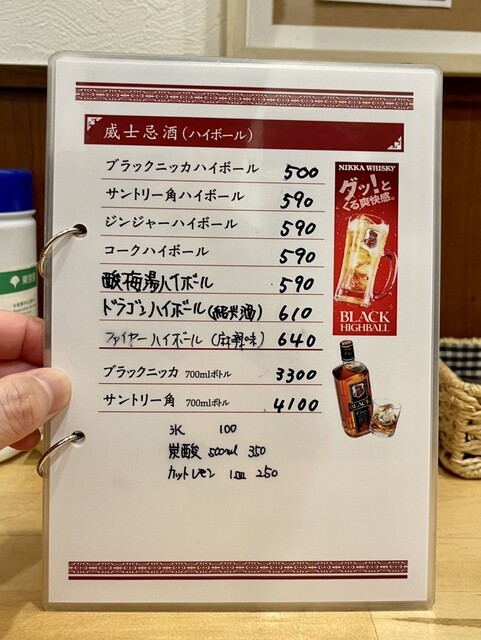 威士忌酒(ハイボール)
ブラックニッカハイボール 500
サントリー角ハイボール 590
ジンジャーハイボール 590
コークハイボール 590
酸梅湯ハイボール 590
ドラゴンハイボール(紹興酒) 610
ファイヤーハイボール(麻辣味) 640
ブラックニッカ 700mlボトル 3300
サントリー角 700mlボトル 4100
氷 100
炭酸 500ml 350
カットレモン 1皿 250
NIKKA WHISKY
ダッ!と
くる爽快感。
BLACK
HIGHBALL
BLACK
東京都